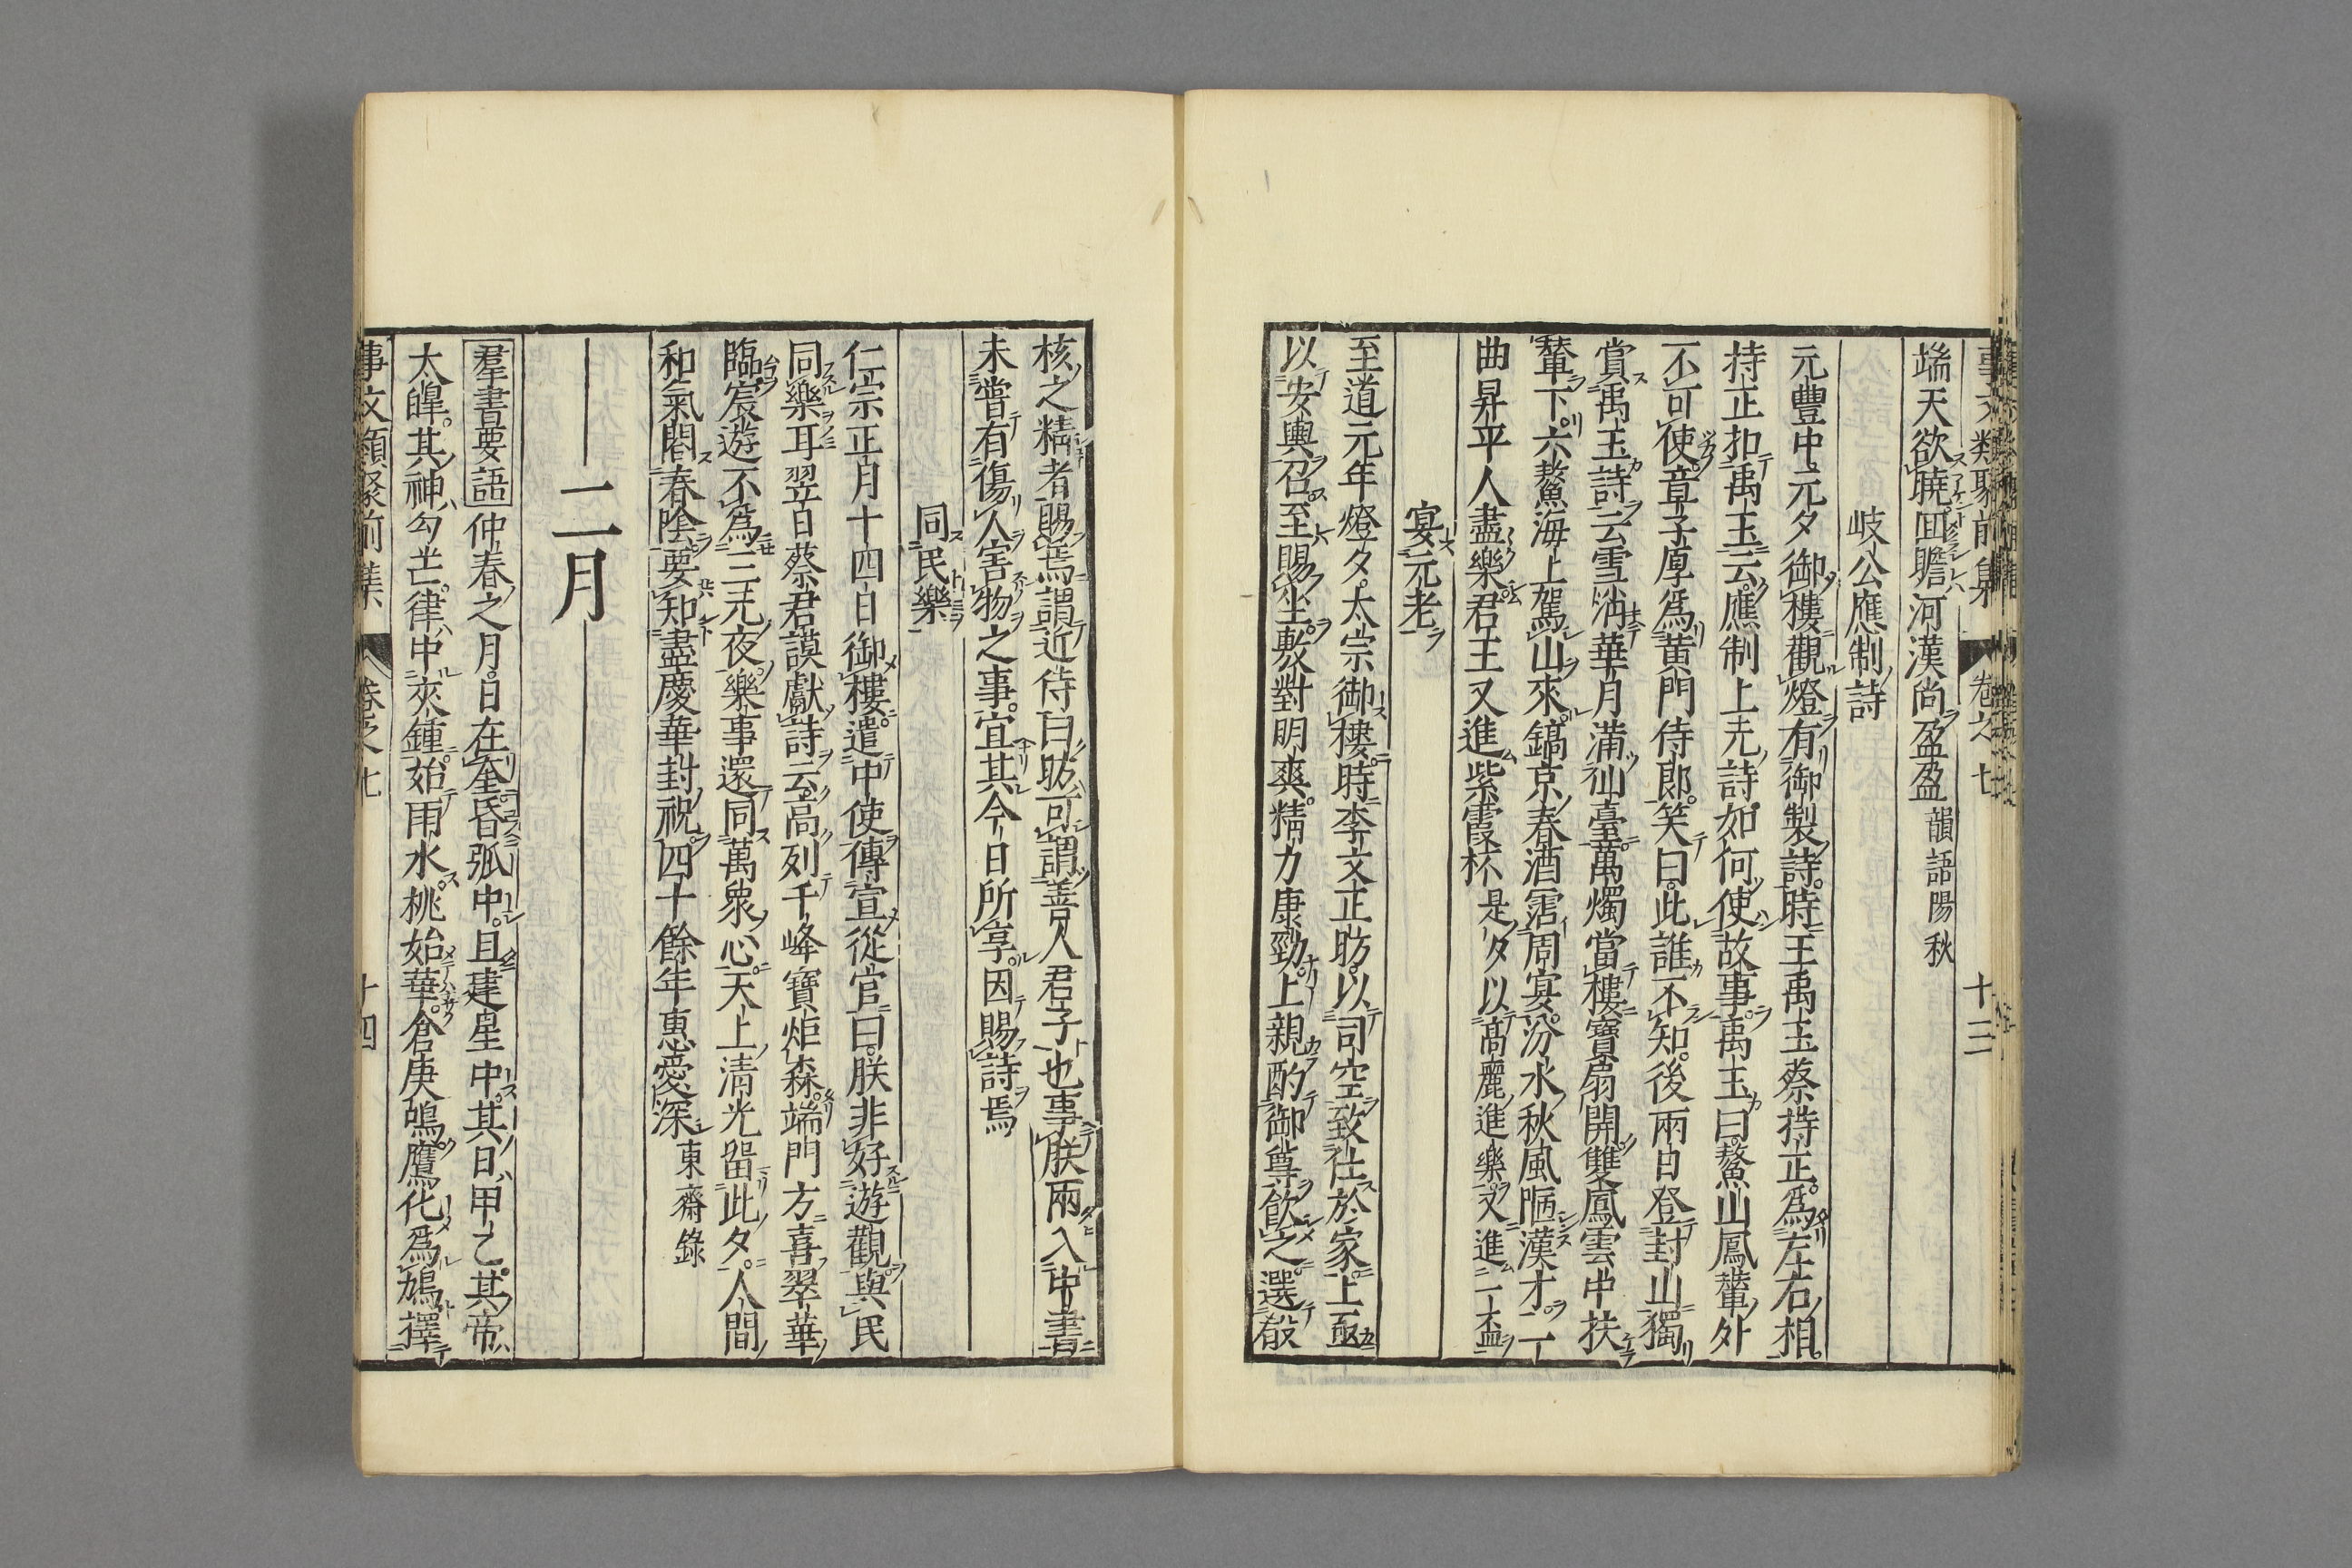 事文類聚前集 卷之七 十三
端天欲曉回瞻河漢尚盈盈 韻語陽秋
岐公應制詩
元豐中元夕御樓觀燈有御製詩時王禹玉蔡持正爲左右相
持正扣禹玉云應制上元詩如何使故事禹玉曰鰲山鳳輦外
不可使章子厚爲黃門侍郎笑曰此誰不知後兩日登封山獨
賞禹玉詩云雪消華月滿仙臺萬燭當樓寶扇開雙鳳雲中扶
輦下六鰲海上駕山來鎬京春酒霑周宴汾水秋風陋漢才一
曲昇平人盡樂君王又進紫霞杯 是夕以高麗進樂又進一盃
宴元老
至道元年燈夕太宗御樓時李文正昉以司空致仕於家上亟
以安輿召至賜坐敷對明爽精力康勁上親酌御尊飮之選殽
核之精者賜焉謂近侍曰昉可謂善人君子也事朕兩入中書
未嘗有傷人害物之事宜其今日所享因賜詩焉
同民樂
仁宗正月十四日御樓遣中使傳宣從官曰朕非好遊觀與民
同樂耳翌日蔡君謨獻詩云高列千峰寶炬森端門方喜翠華
臨宸遊不爲三元夜樂事還同萬衆心天上淸光留此夕人間
和氣閣春陰要知盡慶華封祝四十餘年惠愛深 東齋錄
二月
羣書要語 仲春之月日在奎昏弧中旦建星中其日甲乙其帝
太皞其神勾芒律中夾鍾始雨水桃始華倉庚鳴鷹化爲鳩擇
事文類聚前集 卷之七 十四